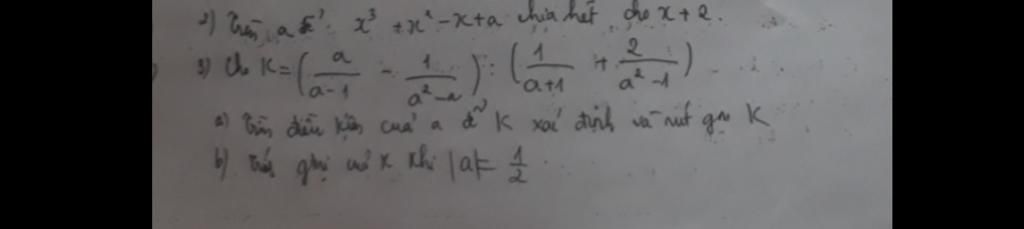 2) Tìm a để: x³ + x² - x + a chia hết cho x + 2.
3) Cho K = (a/(a-1) - 1/(a²-a)) : (1/(a+1) + 2/(a²-1))
a) Tìm điều kiện của a để K xác định và rút gọn K
b) Tính giá trị của K khi |a| = 1/2